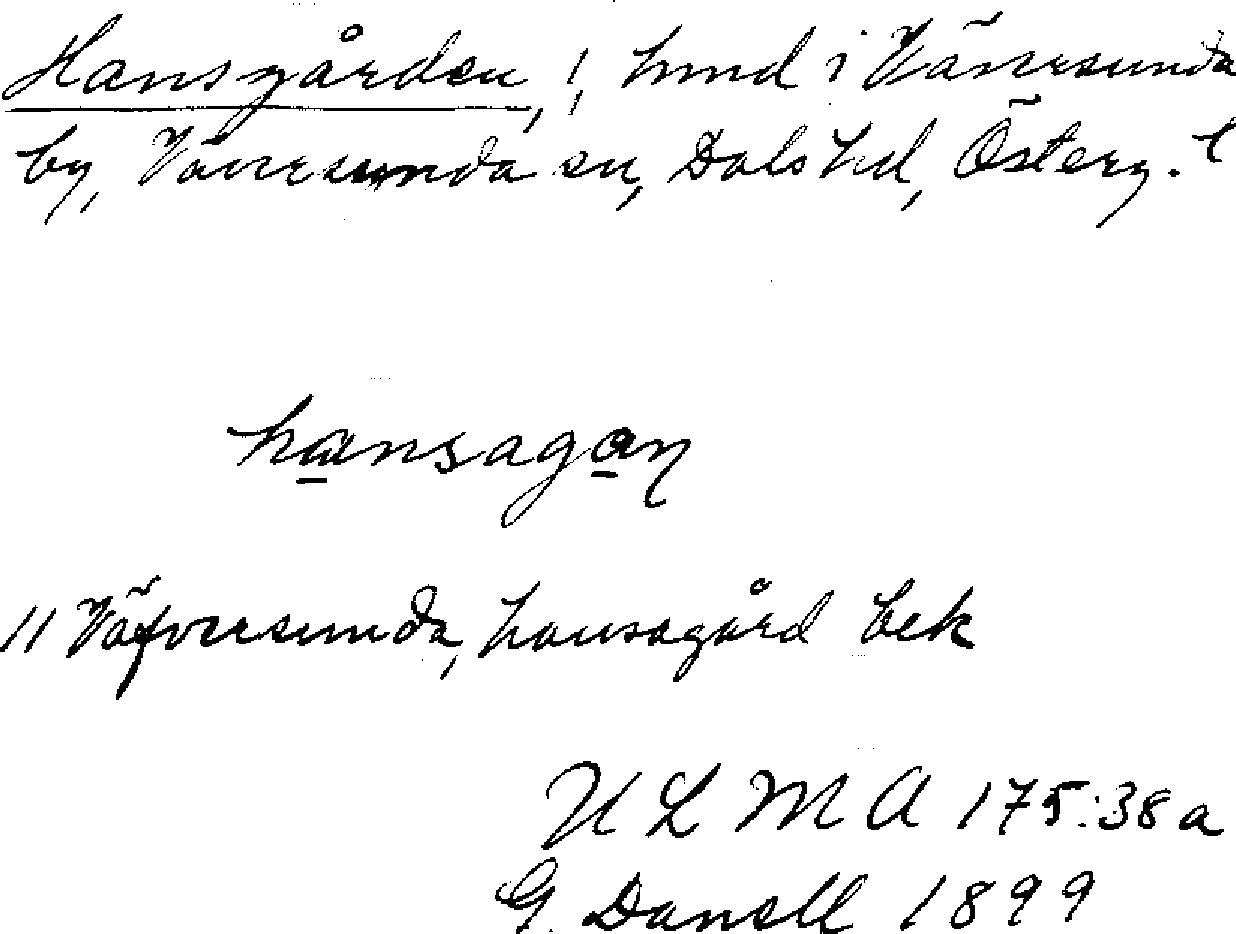 Hansgården, !, hmd i Väversunda
by, Väversunda sn, Dals hd, Österg. l
hansagan
11 Väfversunda, hansagård bek
U L M A 175:38a
G. Danell 1899